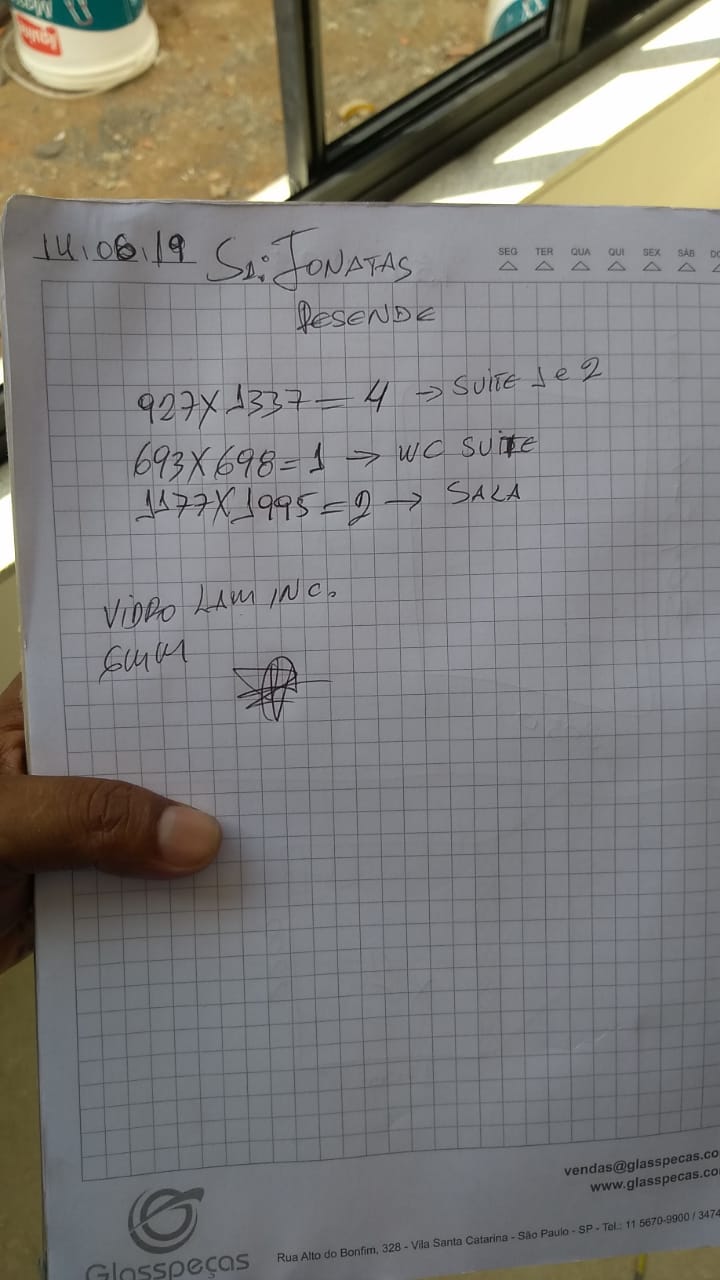 14.06.19 Sr: JONATAS
SEG TER QUA QUI SEX SÁB
RESENDE
927X1337=4 → SUITE 1 e 2
693X698=1 → WC SUITE
1177X1995=2 → SALA
VIDRO LAM INC.
6MM
vendas@glasspecas.co
www.glasspecas.co
Glasspeças
Rua Alto do Bonfim, 328 - Vila Santa Catarina - São Paulo - SP - Tel.: 11 5670-9900 / 3474